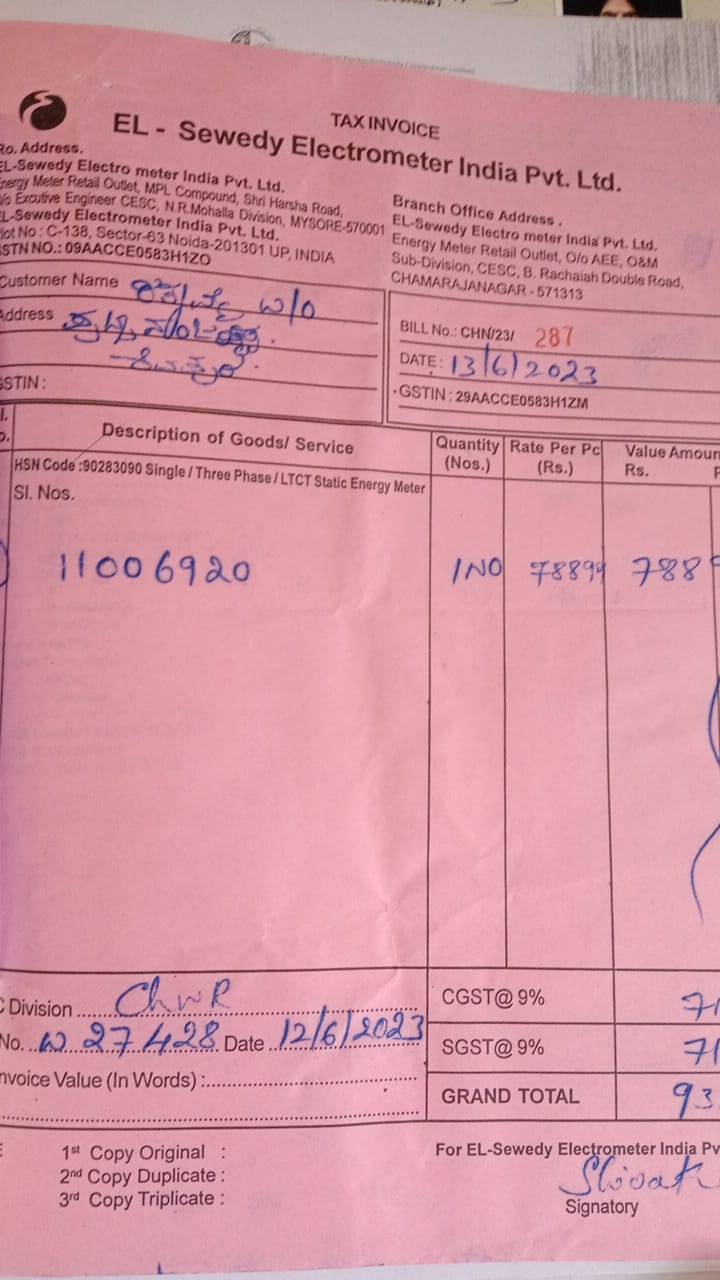 TAX INVOICE
EL - Sewedy Electrometer India Pvt. Ltd.
Ro. Address.
EL-Sewedy Electro meter India Pvt. Ltd.
Energy Meter Retail Outlet, MPL Compound, Shri Harsha Road,
o Excutive Engineer CESC, N.R.Mohalla Division, MYSORE-570001
EL-Sewedy Electrometer India Pvt. Ltd.
lot No : C-138, Sector-63 Noida-201301 UP, INDIA
STN NO.: 09AACCE0583H1ZO
Branch Office Address .
EL-Sewedy Electro meter India Pvt. Ltd.
Energy Meter Retail Outlet, O/o AEE, O&M
Sub-Division, CESC, B. Rachaiah Double Road,
CHAMARAJANAGAR - 571313
Customer Name w/o
Address
STIN :
BILL No.: CHN/23/ 287
DATE : 13/6/2023
GSTIN : 29AACCE0583H1ZM
Description of Goods/ Service
Quantity (Nos.)
Rate Per Pc (Rs.)
Value Amoun
Rs.
HSN Code :90283090 Single / Three Phase / LTCT Static Energy Meter
Sl. Nos.
11006920 1NO 788
Division ChNR
No. W 27428 Date 12/6/2023
nvoice Value (In Words) :
CGST@ 9% 71
SGST@ 9% 71
GRAND TOTAL 93
1st Copy Original :
2nd Copy Duplicate :
3rd Copy Triplicate :
For EL-Sewedy Electrometer India Pv
Signatory